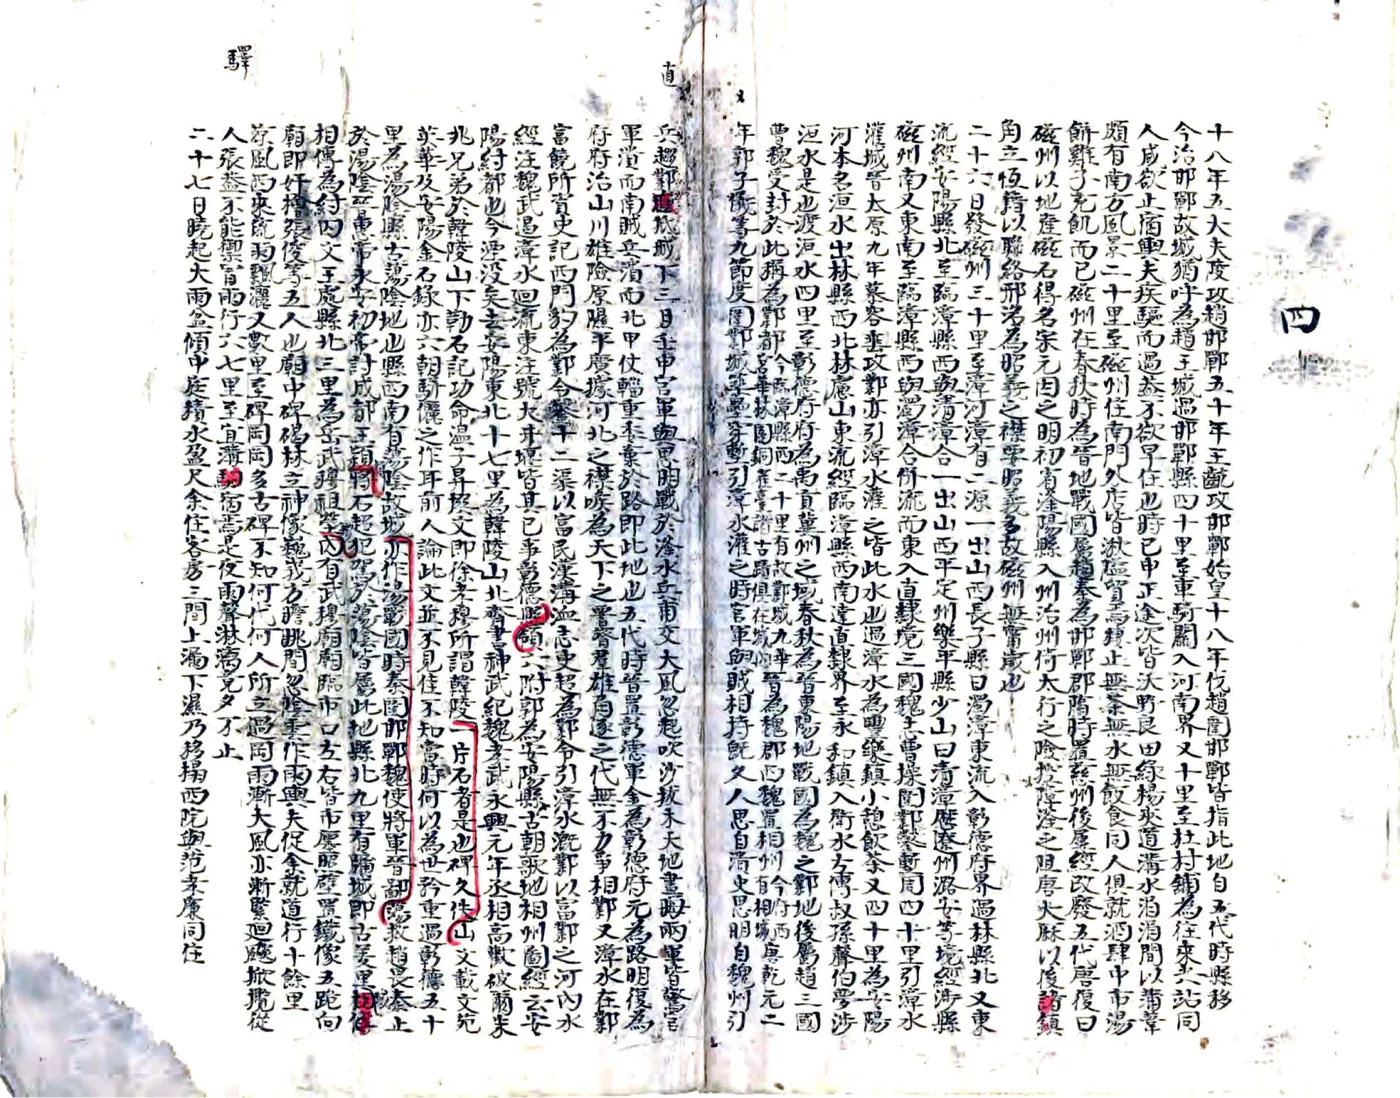 四
十八年五大夫陵攻趙邯鄲五十年王齕攻邯鄲始皇十八年伐趙圍邯鄲皆指此地自五代時縣移
今治邯鄲故城猶呼為趙王城過邯鄲縣四十里至車騎關入河南界又十里至杜村鋪為往來共站同
人咸欲止宿輿夫疾驅而過蓋不欲早住也時已申正途次皆沃野良田綠楊夾道溝水涓涓間以蒲葦
頗有南方風景二十里至磁州住南門久店皆湫隘貿焉鎖止無茶無水無飯食同人俱就酒肆中市湯
餅雞子充飢而已磁州在春秋時為晉地戰國屬趙秦為邯鄲郡隋時置慈州後屢經改廢五代唐復曰
磁州以地產磁石得名宋元因之明初省滏陽縣入州治州倚太行之險控漳滏之阻唐大厤以後諸鎮
角立恆藉以聯絡邢洺為昭義之襟要昭義多故磁州無甯歲也
二十六日發磁州三十里至漳河漳有二源一出山西長子縣曰濁漳東流入彰德府界過林縣北又東
流經安陽縣北至臨漳縣西與清漳合一出山西平定州樂平縣少山曰清漳歷遼州潞安等境經涉縣
磁州南又東南至臨漳縣西與濁漳合併流而東入直隸境三國魏志曹操圍鄴鑿塹周四十里引漳水
灌城晉太原九年慕容垂攻鄴亦引漳水灌之皆此水也過漳水為豐樂鎮小憩飲茶又四十里為安陽
河本名洹水出林縣西北林慮山東流經臨漳縣西南達直隸界至永和鎮入衛水左傳叔孫聲伯夢涉
洹水是也渡洹水四里至彰德府府為禹貢冀州之域春秋為晉東陽地戰國為魏之鄴地後屬趙三國
曹魏受封於此稱為鄴都今臨漳縣西二十里有故鄴城九華宮華林園銅雀臺諸古蹟俱在城內晉為魏郡西魏置相州今府西有相城唐乾元二
年郭子儀等九節度圍鄴城築壘穿塹引漳水灌之時官軍與賊相持既久人思自潰史思明自魏州引
直
兵趨鄴逼城下三月壬申官軍與思明戰於滏水兵甫交大風忽起吹沙拔木天地晝晦兩軍皆驚官
軍潰而南賊兵潰而北甲仗輜重棄於路即此地也五代時晉置彰德軍金為彰德府元為路明復為
府府治山川雄險原隰平廣據河北之襟喉為天下之署脊羣雄角逐之代無不力爭相鄴又漳水在鄴
富饒所資史記西門豹為鄴令鑿十二渠以富民漢溝洫志史起為鄴令引漳水溉鄴以富鄴之河內水
經注魏武遏漳水迴流東注號天井堰皆其已事彰德縣領六附郭為安陽縣古朝歌地相州圖經云安
陽紂都也今湮沒矣去安陽東北十七里為韓陵山北齊書神武紀魏孝武永興元年丞相高歡破爾朱
兆兄弟於韓陵山下勒石記功命溫子昇撰文即徐孝穆所謂韓陵一片石者是也碑久佚山文載文苑
英華及安陽金石錄亦六朝駢儷之作耳前人論此文並不見佳不知當時何以為世矜重過彰德五十
里為湯陰縣古蕩陰地也縣西南有蕩陰故城亦作湯戰國時秦圍邯鄲魏使將軍晉鄙救趙畏秦止
於湯陰晉惠帝永安初帝討成都王穎將石超犯駕於蕩陰皆屬此地縣北九里有牖城即古羑里相傳
相傳為紂囚文王處縣北三里為岳武穆祖塋內有武穆廟廟臨市口左右皆市廛照壁置鐵像五跪向
廟即奸檜張俊等五人也廟中碑碣林立神像巍峩方瞻眺間忽陰雲作雨輿夫促僉就道行十餘里
京風西來流雨飄灑又數里至碑岡岡多古碑不知何代何人所立過岡雨漸大風亦漸緊迴飈掀攬從
人張蓋不能禦冒雨行六七里至宜溝驛宿焉是夜雨聲淋漓夕夕不止
二十七日曉起大雨盆傾中庭積水盈尺余住客房三間上漏下濕乃移榻西院與范孝廉同住
驛